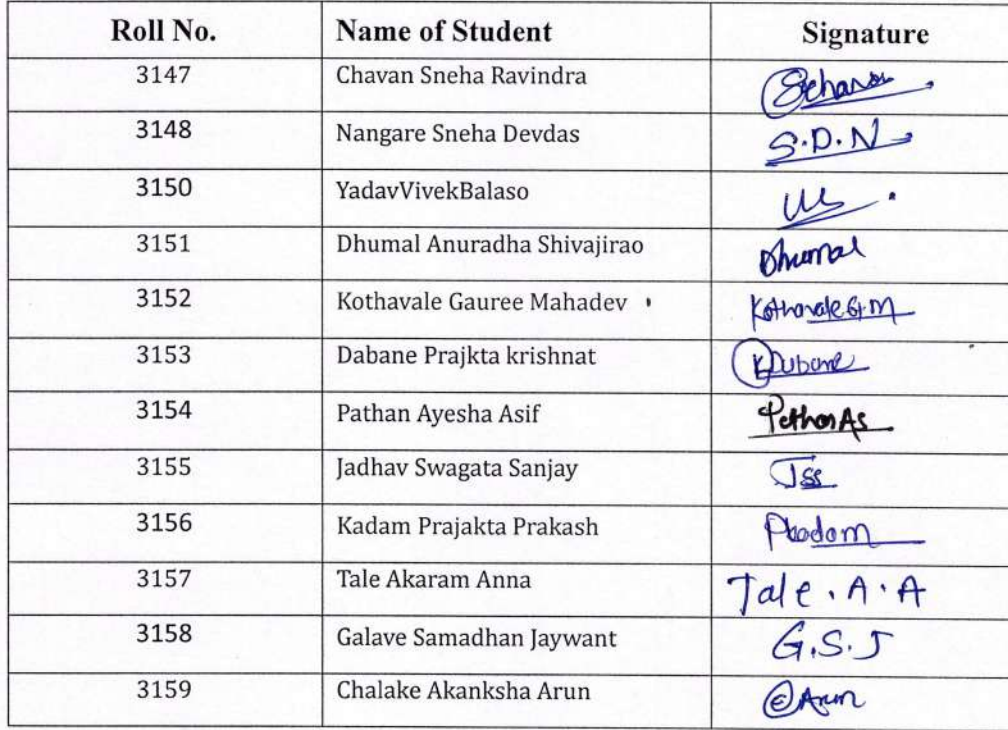 Roll No. Name of Student Signature
3147 Chavan Sneha Ravindra
3148 Nangare Sneha Devdas S.D.N
3150 YadavVivekBalaso
3151 Dhumal Anuradha Shivajirao Dhumal
3152 Kothavale Gauree Mahadev Kothavale G.M
3153 Dabane Prajkta krishnat
3154 Pathan Ayesha Asif
3155 Jadhav Swagata Sanjay Jss
3156 Kadam Prajakta Prakash
3157 Tale Akaram Anna Tale . A . A
3158 Galave Samadhan Jaywant G.S.J
3159 Chalake Akanksha Arun Arun